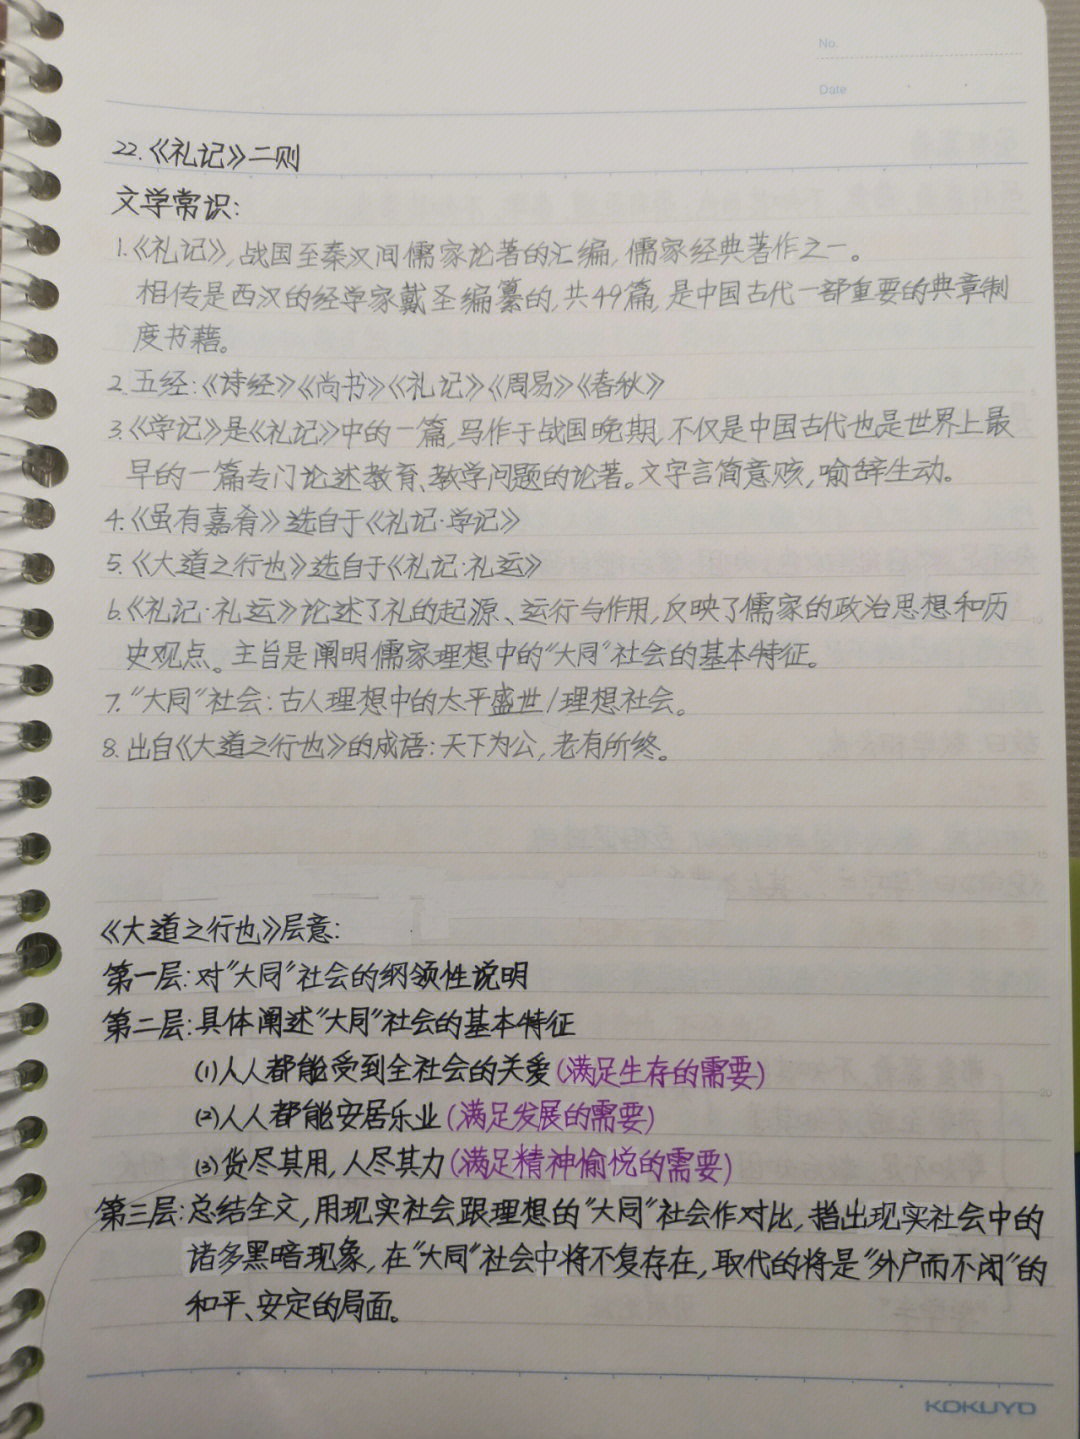 No.
Date
22.《礼记》二则
文学常识：
1.《礼记》，战国至秦汉间儒家论著的汇编，儒家经典著作之一。
相传是西汉的经学家戴圣编纂的，共49篇，是中国古代一部重要的典章制
度书籍。
2.五经：《诗经》《尚书》《礼记》《周易》《春秋》
3.《学记》是《礼记》中的一篇，写作于战国晚期，不仅是中国古代也是世界上最
早的一篇专门论述教育、教学问题的论著。文字言简意赅，喻辞生动。
4.《虽有嘉肴》选自于《礼记·学记》
5.《大道之行也》选自于《礼记·礼运》
6.《礼记·礼运》论述了礼的起源、运行与作用，反映了儒家的政治思想和历
史观点。主旨是阐明儒家理想中的“大同”社会的基本特征。
7.“大同”社会：古人理想中的太平盛世/理想社会。
8.出自《大道之行也》的成语：天下为公，老有所终。
《大道之行也》层意：
第一层：对“大同”社会的纲领性说明
第二层：具体阐述“大同”社会的基本特征
(1)人人都能受到全社会的关爱(满足生存的需要)
(2)人人都能安居乐业(满足发展的需要)
(3)货尽其用，人尽其力(满足精神愉悦的需要)
第三层：总结全文，用现实社会跟理想的“大同”社会作对比，指出现实社会中的
诸多黑暗现象，在“大同”社会中将不复存在，取代的将是“外户而不闭”的
和平、安定的局面。
KOKUYO